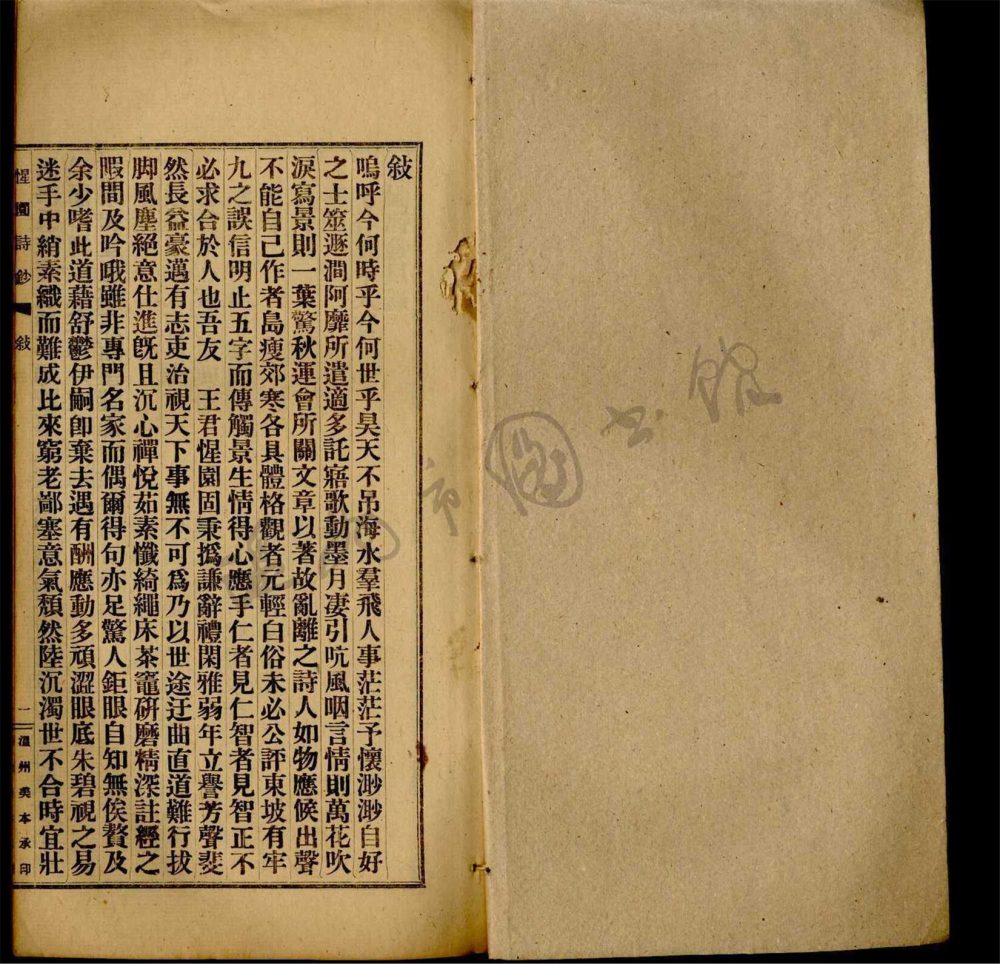 敍
嗚呼今何時乎今何世乎昊天不吊海水羣飛人事茫茫予懷渺渺自好
之士筮遯澗阿靡所遣適多託寤歌動墨月凄引吭風咽言情則萬花吹
淚寫景則一葉驚秋運會所關文章以著故亂離之詩人如物應候出聲
不能自己作者島瘦郊寒各具體格觀者元輕白俗未必公評東坡有牢
九之誤信明止五字而傳觸景生情得心應手仁者見仁智者見智正不
必求合於人也吾友 王君惺園固秉撝謙辭禮閑雅弱年立譽芳聲斐
然長益豪邁有志吏治視天下事無不可為乃以世途迂曲直道難行拔
脚風塵絕意仕進旣且沉心禪悅茹素懺綺繩床茶竈硏磨精深註經之
暇間及吟哦雖非專門名家而偶爾得句亦足驚人鉅眼自知無俟贅及
余少嗜此道藉舒鬱伊嗣卽棄去遇有酬應動多頑澀眼底朱碧視之易
迷手中綃素織而難成比來窮老鄙塞意氣頹然陸沉濁世不合時宜壯
惺園詩鈔 敍 一 溫州美本承印
市圖書館